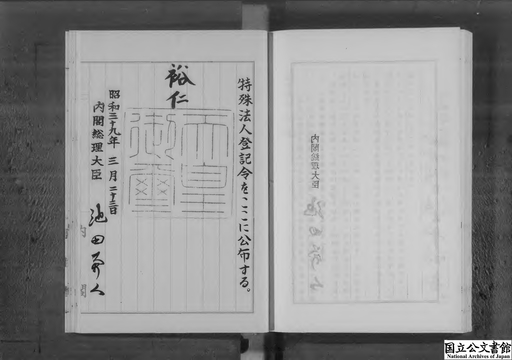 特殊法人登記令をここに公布する。
裕仁
天皇御璽
昭和三十九年三月二十三日
内閣総理大臣
池田勇人
内閣
内閣総理大臣
国立公文書館
National Archives of Japan